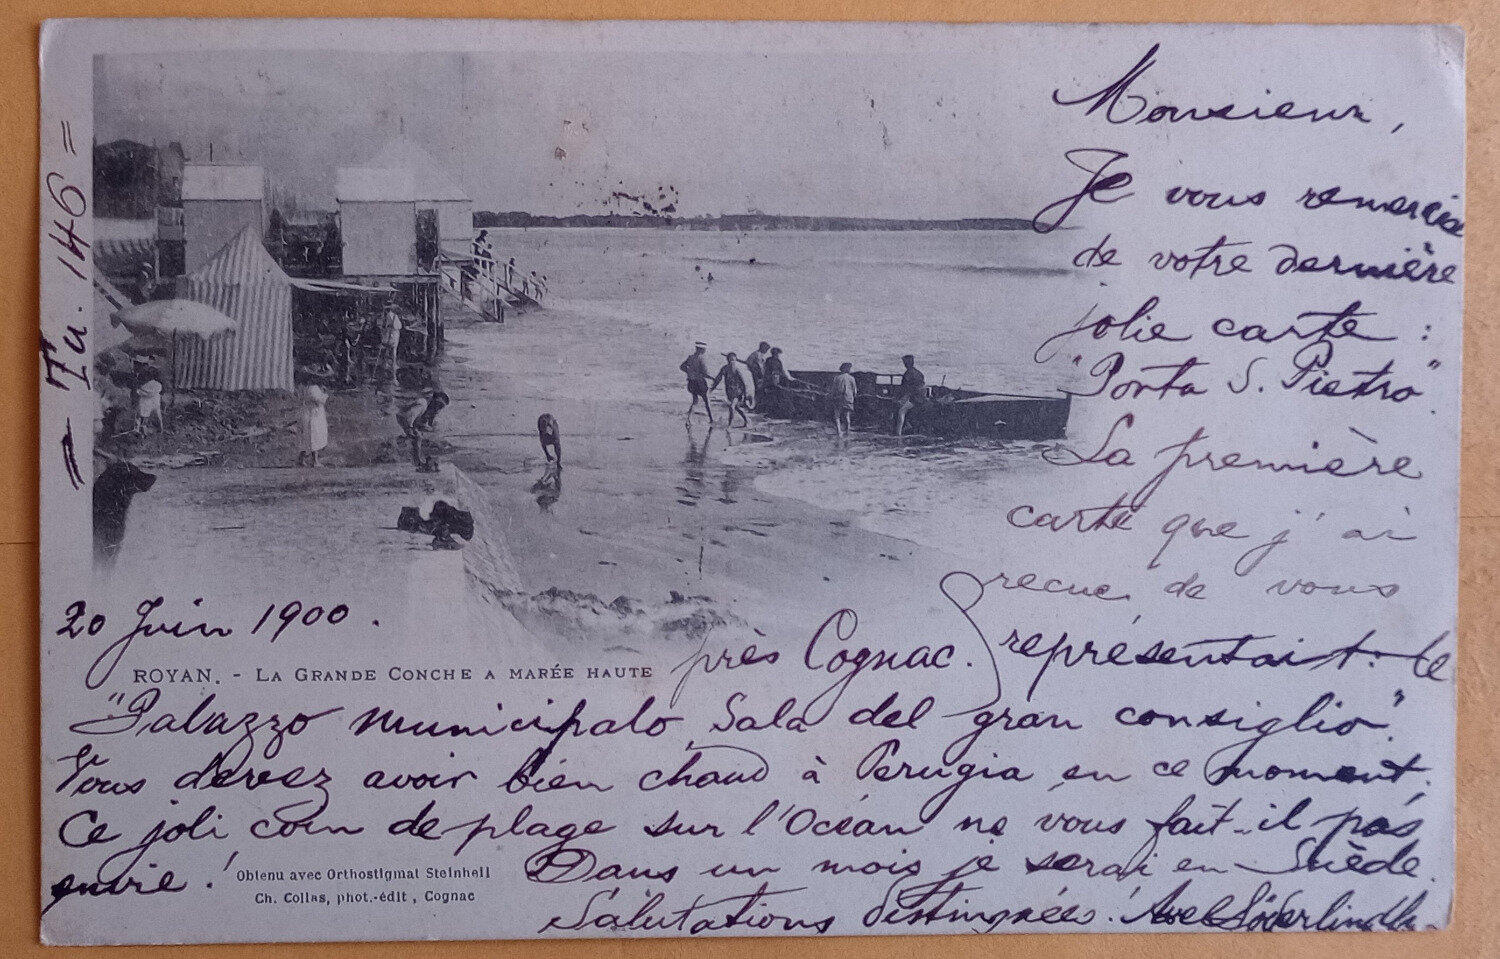 = Fu. 146 =
Monsieur,
Je vous remercie
de votre dernière
jolie carte :
"Porta S. Pietro".
La première
carte que j'ai
reçue de vous
20 Juin 1900.
près Cognac. représentait: le
ROYAN. - LA GRANDE CONCHE A MARÉE HAUTE
"Palazzo municipalo, Sala del gran consiglio".
Vous devez avoir bien chaud à Perugia en ce moment.
Ce joli coin de plage sur l'Océan ne vous fait-il pas
envie! Dans un mois je serai en Suède.
Obtenu avec Orthostigmat Steinheil
Ch. Collas, phot.-édit, Cognac
Salutations distinguées! Axel